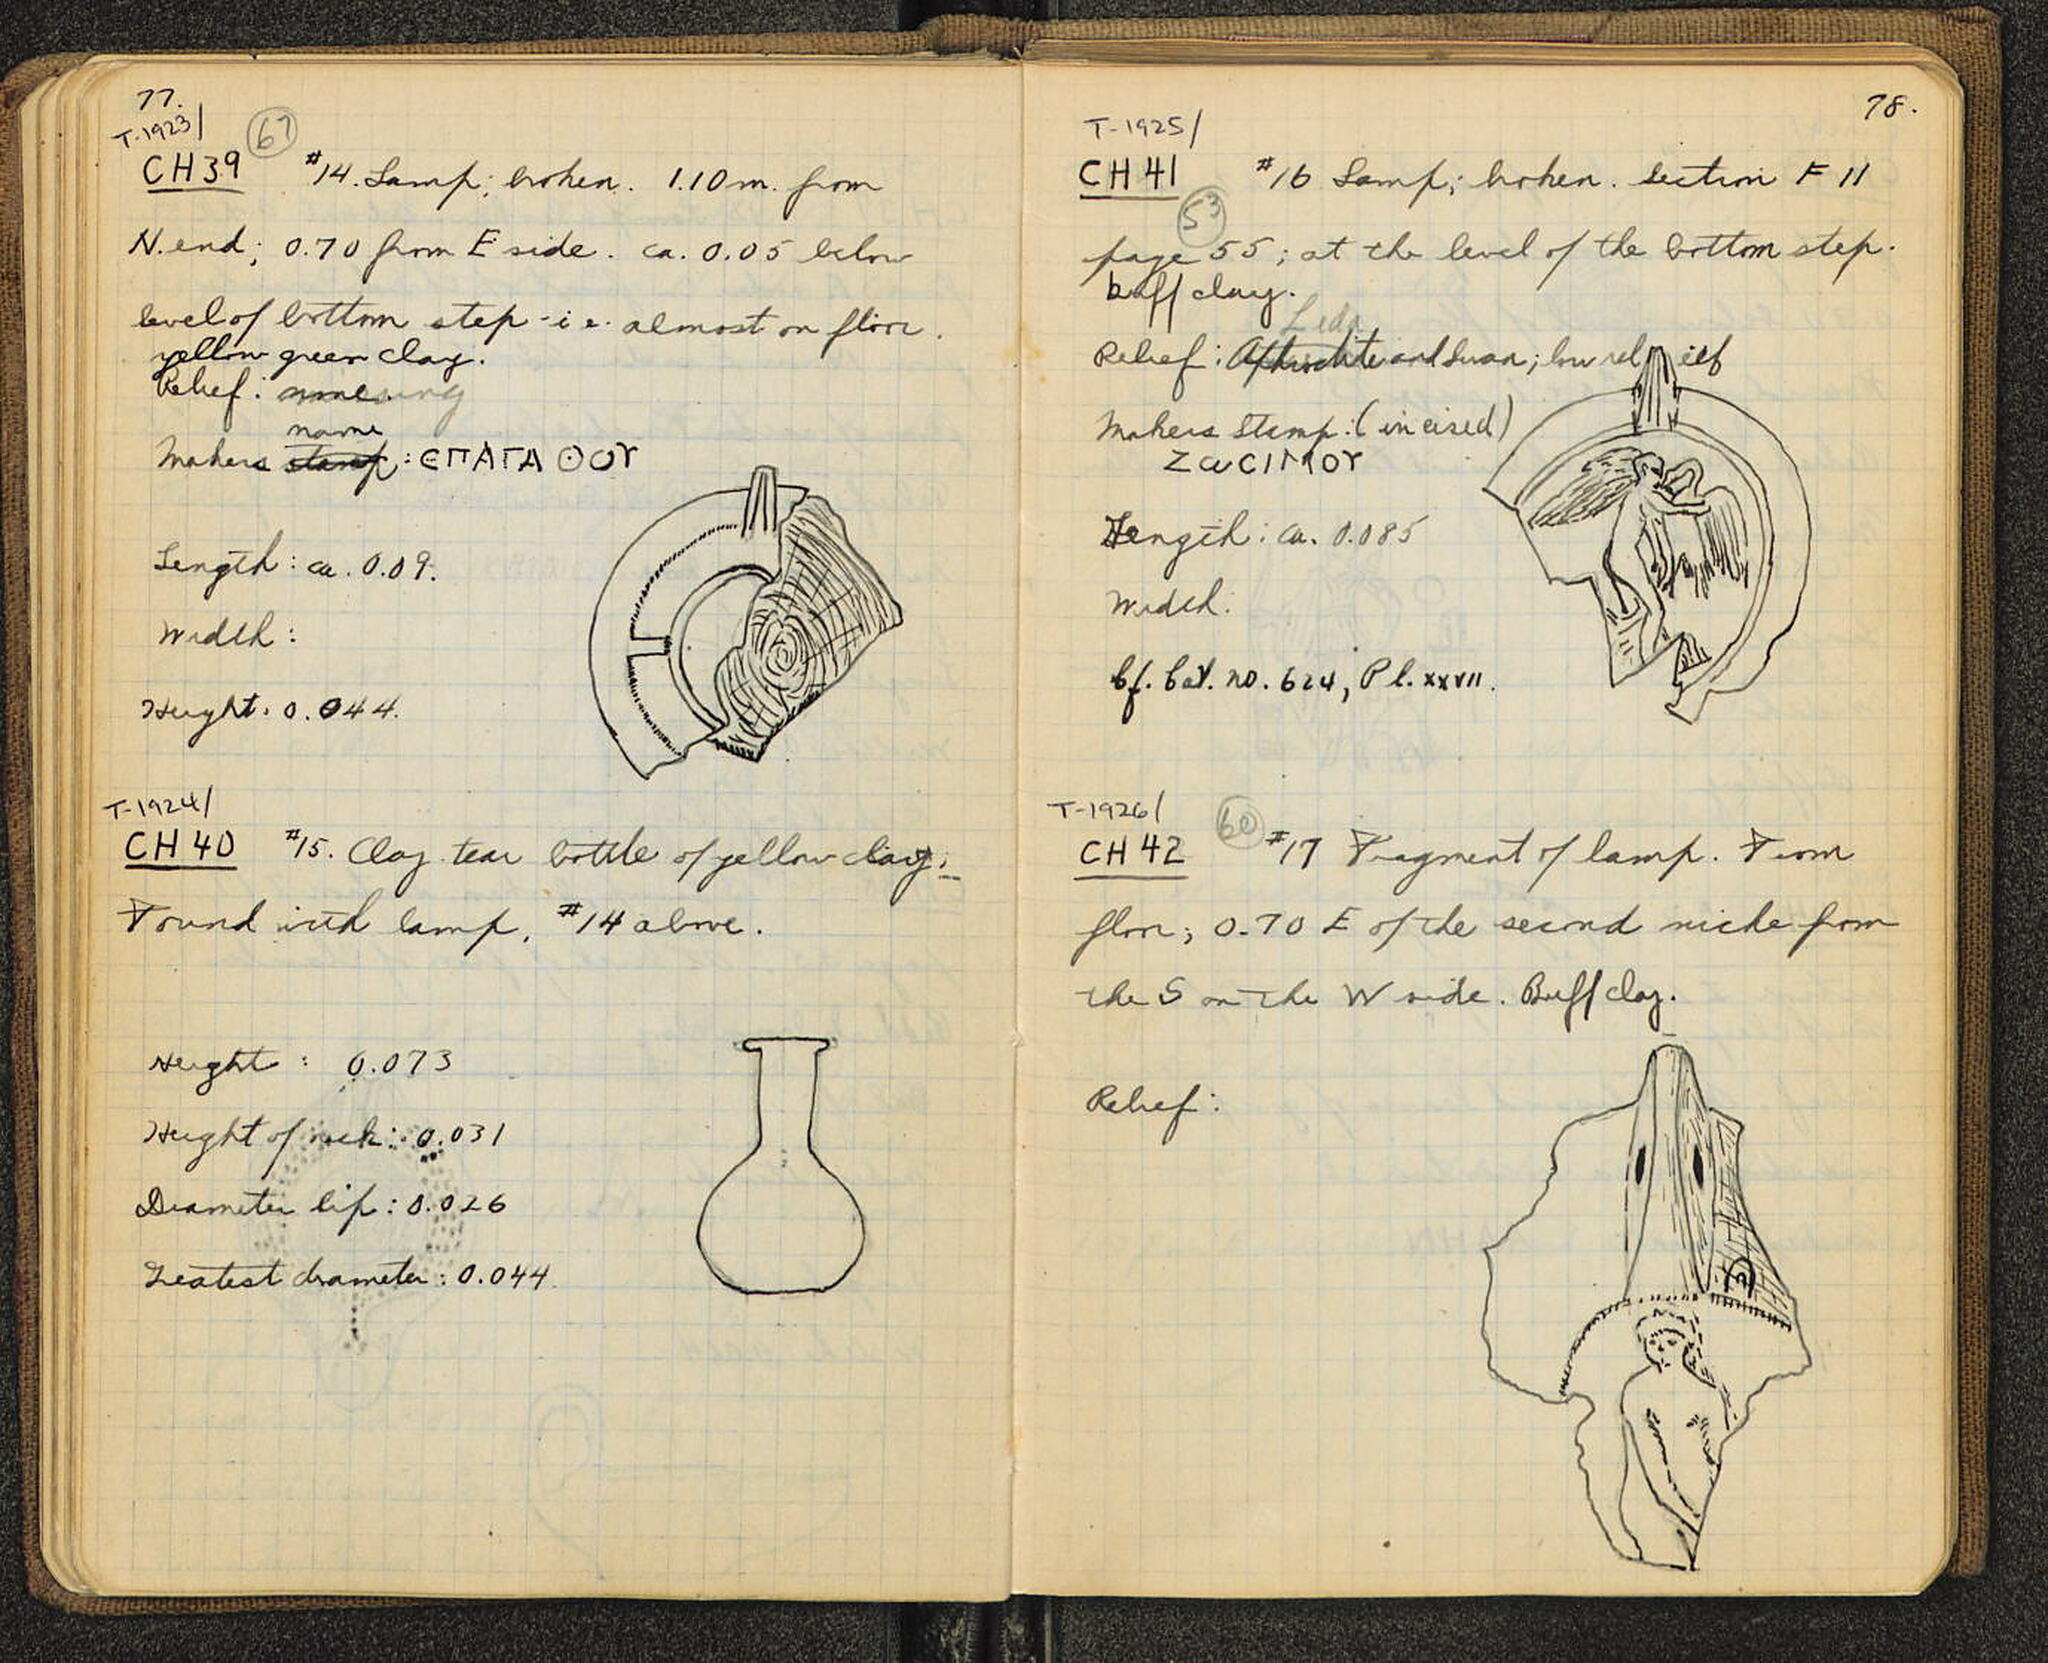 77.
T-1923/
67
CH 39 #14. Lamp; broken. 1.10 m. from
N. end; 0.70 from E side. ca. 0.05 below
level of bottom step - i.e. almost on floor.
yellow green clay.
Relief: none.
name
Makers stamp: ЄΠΑΓΑΘΟΥ
Length: ca. 0.09.
Width:
Height: 0.044.
T-1924/
CH 40 #15. Clay tear bottle of yellow clay;
Found with lamp, #14 above.
Height: 0.073
Height of neck: 0.031
Diameter lip: 0.026
Greatest diameter: 0.044
78.
T-1925/
CH 41 #16 Lamp; broken. Section F 11
53
page 55; at the level of the bottom step.
buff clay.
Leda
Relief: Aphrodite and Swan; low relief
Makers Stamp: (incised)
ΖωCΙΜΟΥ
Length: ca. 0.085
Width:
Cf. Cat. no. 624, Pl. XXVII.
T-1926/
60
CH 42 #17 Fragment of lamp. From
floor; 0.70 E of the second niche from
the S on the W side. Buff clay.
Relief: